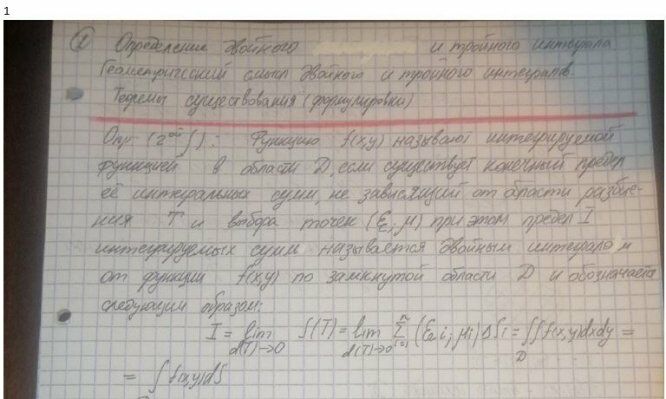 1
① Определение двойного и тройного интеграла
Геометрический смысл двойного и тройного интегралов
Теоремы существования (формулировки)
Опр (2ой ∫): Функцию f(x,y) называют интегрируемой
функцией в области D, если существует конечный предел
её интегральных сумм, не зависящий от области разбие-
ния T и выбора точек (ξ; μ) при этом предел I
интегрируемых сумм называется двойным интегралом
от функции f(x,y) по замкнутой области D и обозначается
следующим образом:
I = lim d(T)→0 S(T) = lim d(T)→0 Σ i=1 n (ξi; μi) ΔSi = ∬ D f(x,y)dxdy =
= ∫ f(x,y)dS